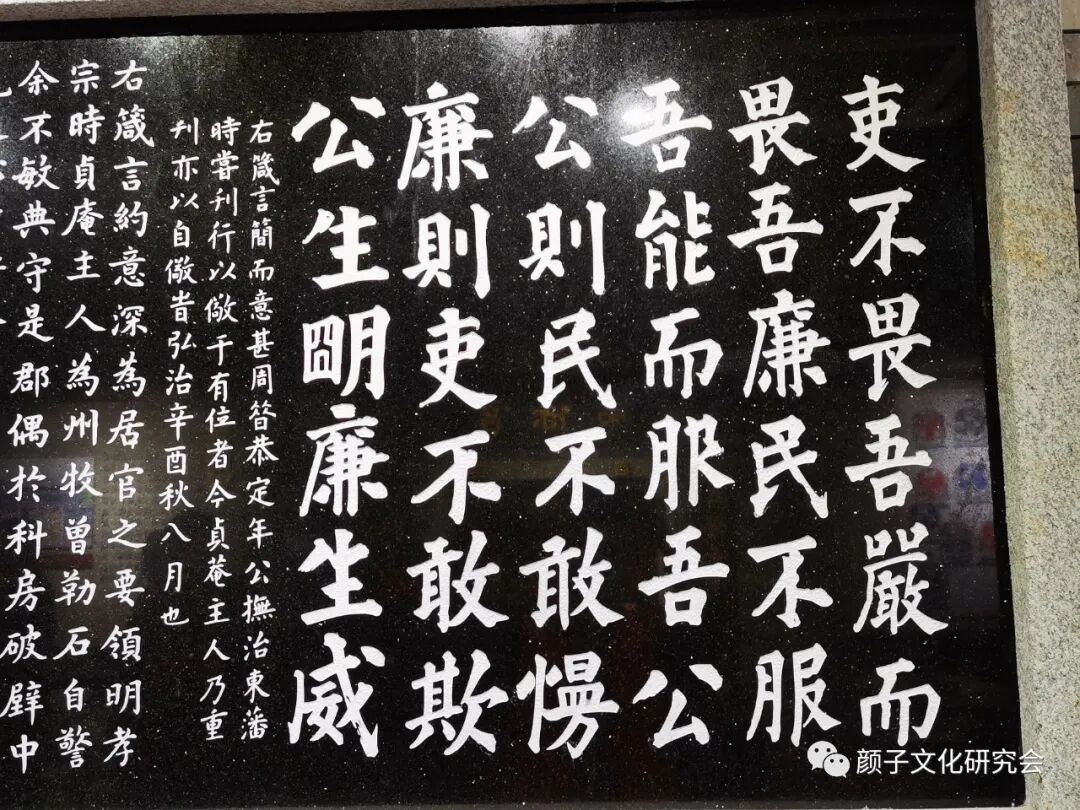 吏不畏吾嚴而
畏吾廉民不服
吾能而服吾公
公則民不敢慢
廉則吏不敢欺
公生明廉生威
右箴言簡而意甚周昝恭定年公撫治東藩
時嘗刋行以儆于有位者今貞菴主人乃重
刋亦以自儆旹弘治辛酉秋八月也
右箴言約意深為居官之要領明孝
宗時貞庵主人為州牧曾勒石自警
余不敏典守是郡偶於科房破壁中
颜子文化研究会